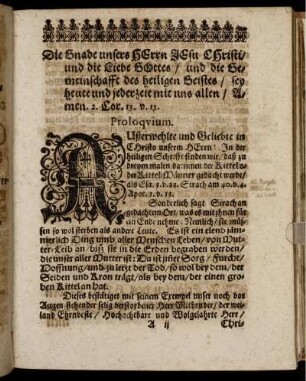 Die Gnade unsers HErrn JEsu Christi/
und die Liebe GOttes/ und die Ge-
meinschafft des heiligen Geistes/ sey
heute und jederzeit mit uns allen/ A-
men. 2. Cor. 13. v. 13.
Proloqvium.
AUserwehlte und Geliebte in
CHristo unserm HErrn! In der
heiligen Schrifft finden wir/ daß zu
dreyen malen darinnen der Kittel oder
der Kittel-Männer gedacht werde/
als Esa. 3. v. 23. Sirach am 40. v. 4.
Apoc. 1. v. 13.
Sonderlich sagt Sirach an
gedachtem Ort/ was es mit ihnen für
ein Ende nehme: Nemlich/ sie müs-
sen so wol sterben als andre Leute. Es ist ein elend jäm-
merlich Ding umb aller Menschen Leben/ von Mut-
ter-Leib an/ biß sie in die Erden begraben werden/
die unser aller Mutter ist: Da ist jm̄er Sorg/ Furcht/
Hoffnung/ und zu letzt der Tod/ so wol bey dem/ der
Seiden und Kron trägt/ als bey dem/ der einen gro-
ben Kittel an hat.
Dieses bestätiget mit seinem Exempel unser noch vor
Augen stehender selig verstorbener Herr Mitbruder/ der wei-
land Ehrnveste/ Hochachtbare und Wolgelahrte Herr/
A ij Chri-